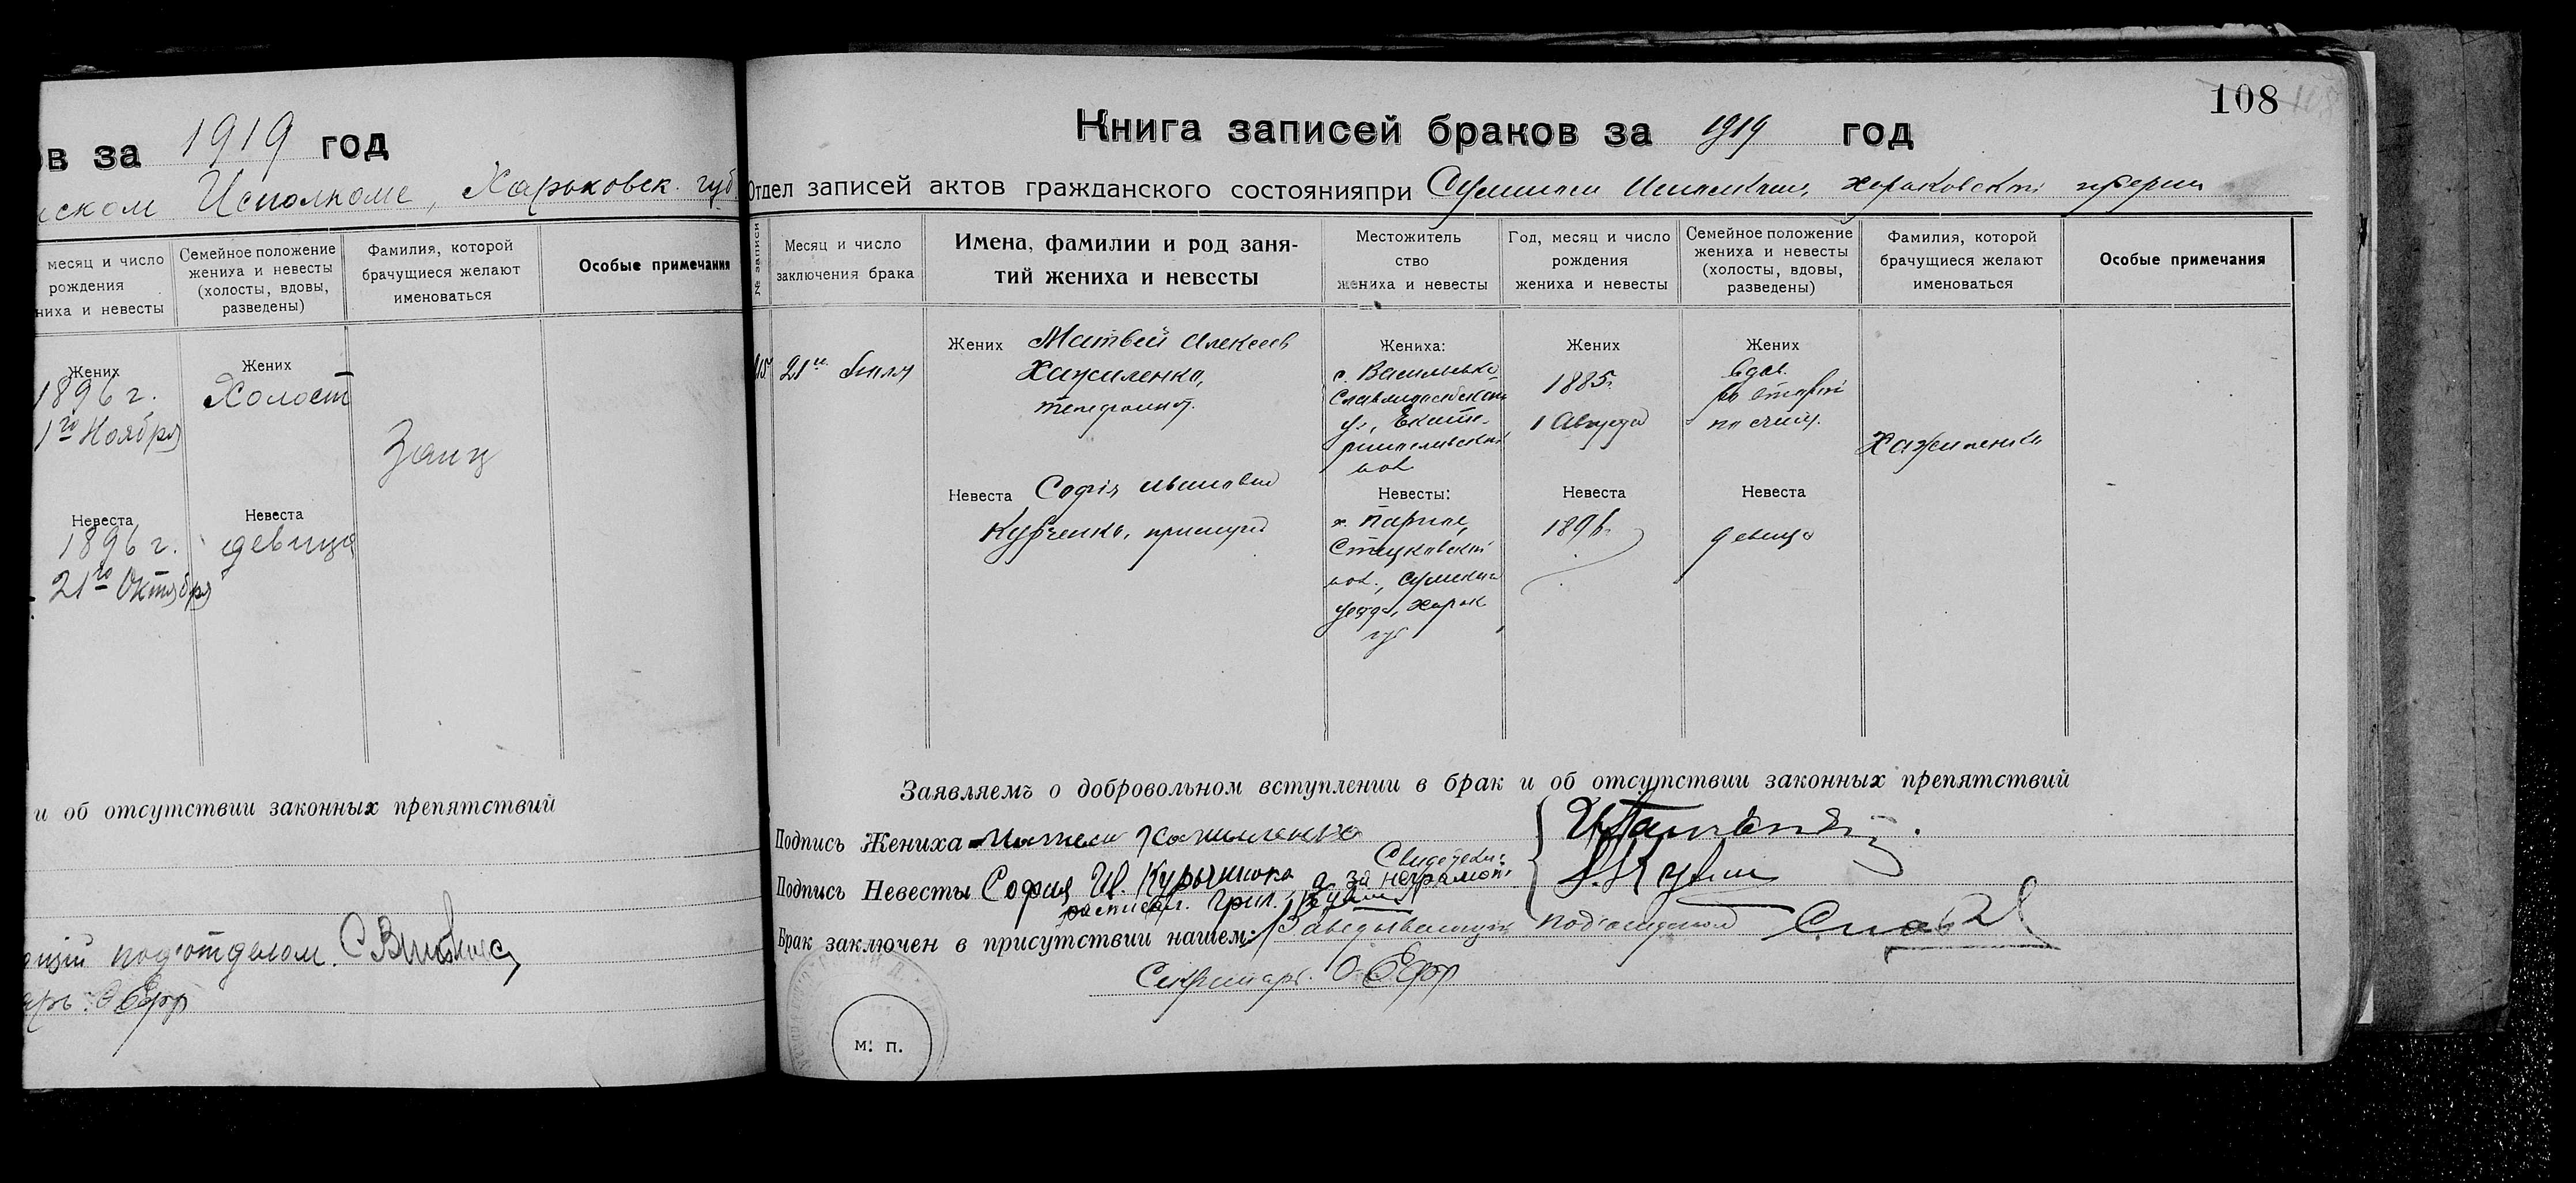 ов за 1919 год
Исполкоме, Харьковск. губ
месяц и число
рождения
ниха и невесты
Семейное положение
жениха и невесты
(холосты, вдовы,
разведены)
Фамилия, которой
брачущиеся желают
именоваться
Особые примечания
Жених
1896 г.
1го Ноября
Жених
Холост
Заиц
Невеста
1896 г.
21го Октября
Невеста
девица
и об отсутствии законных препятствий
под'отделом.
108
Книга записей браков за 1919 год
Отдел записей актов гражданского состоянияпри Сумском Исполкоме, Харьковской губернии
№ записи
Месяц и число
заключения брака
Имена, фамилии и род заня-
тий жениха и невесты
Местожитель
ство
жениха и невесты
Год, месяц и число
рождения
жениха и невесты
Семейное положение
жениха и невесты
(холосты, вдовы,
разведены)
Фамилия, которой
брачущиеся желают
именоваться
Особые примечания
21го
Жених Матвей Алексеев
Хажиленко,
телефонист.
Жениха:
с. Васильевка
Славяносербского
у., Екате-
ринославской
Жених
1885г.
1 Августа
Жених
вдов.
Хажиленко
Невеста Софія Ивановна
Курченко, прислуга
Невесты:
Сумского
уезда, Харьк
губ
Невеста
1896.
Невеста
девица
Заявляемъ о добровольном вступлении в брак и об отсутствии законных препятствий
Подпись Жениха Матвей Хажиленко
Подпись Невесты София Ив. Курченкова а за неграмот.
Свидетели:
расписал. Григ.
Брак заключен в присутствии нашем: Заведывающий под'отделом
Секретарь
м. п.